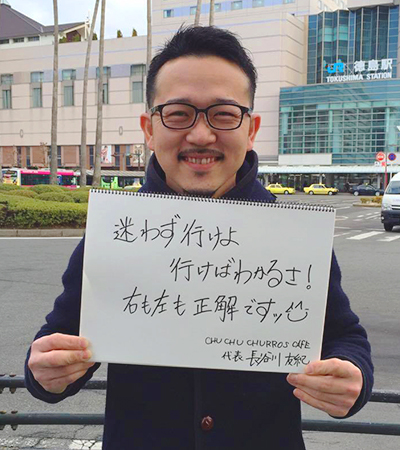 徳島駅
TOKUSHIMA STATION
迷わず行けよ
行けばわかるさ!
右も左も正解ですッ
CHU CHU CHURROS CAFE
代表 長谷川 友紀